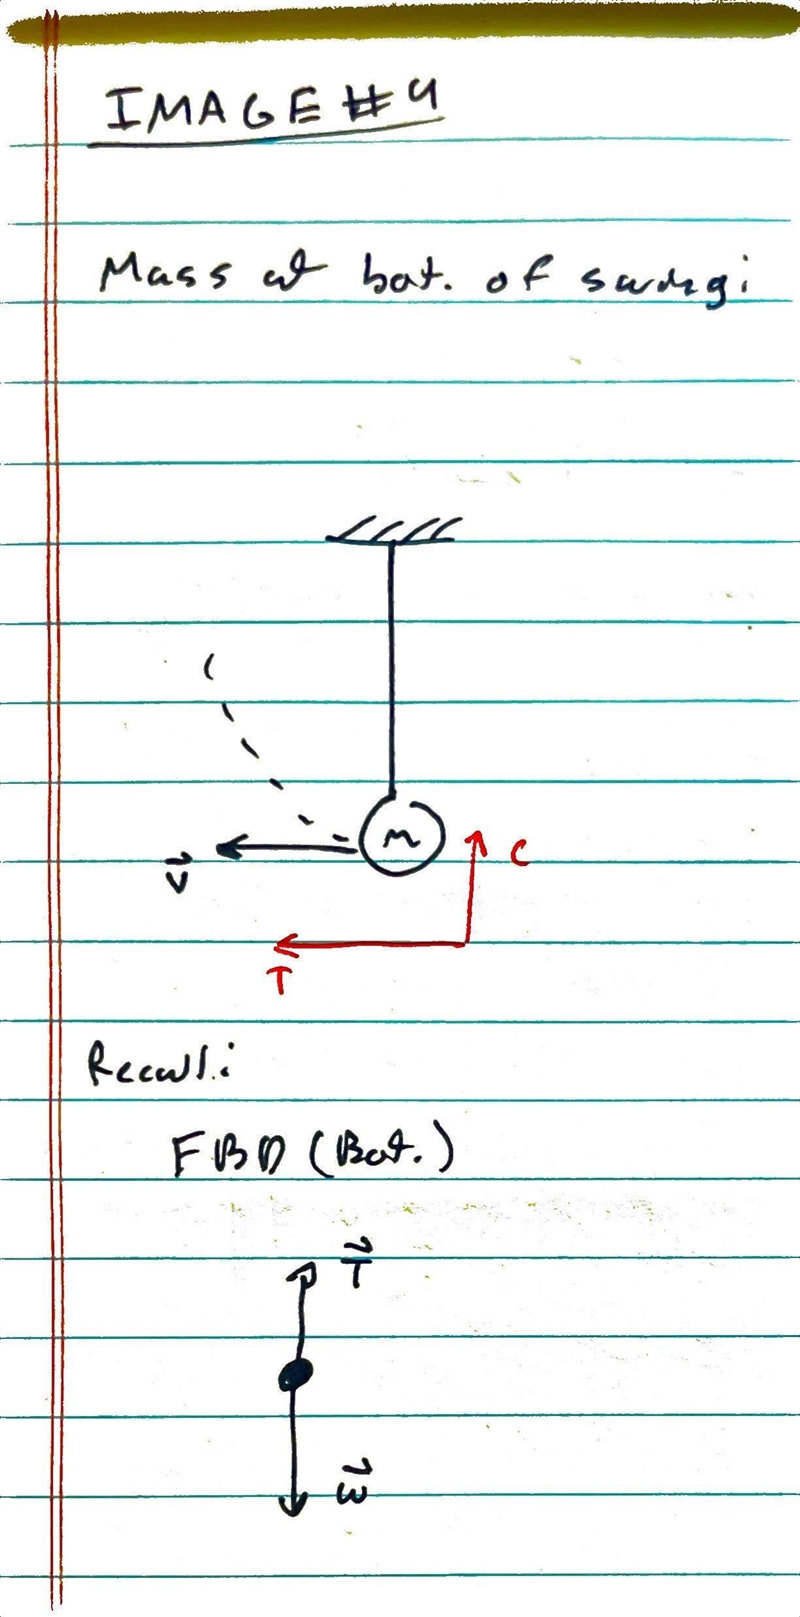 IMAGE #4
Mass at bot. of swing:
m
C
v
T
Recall:
FBD (Bot.)
T
w